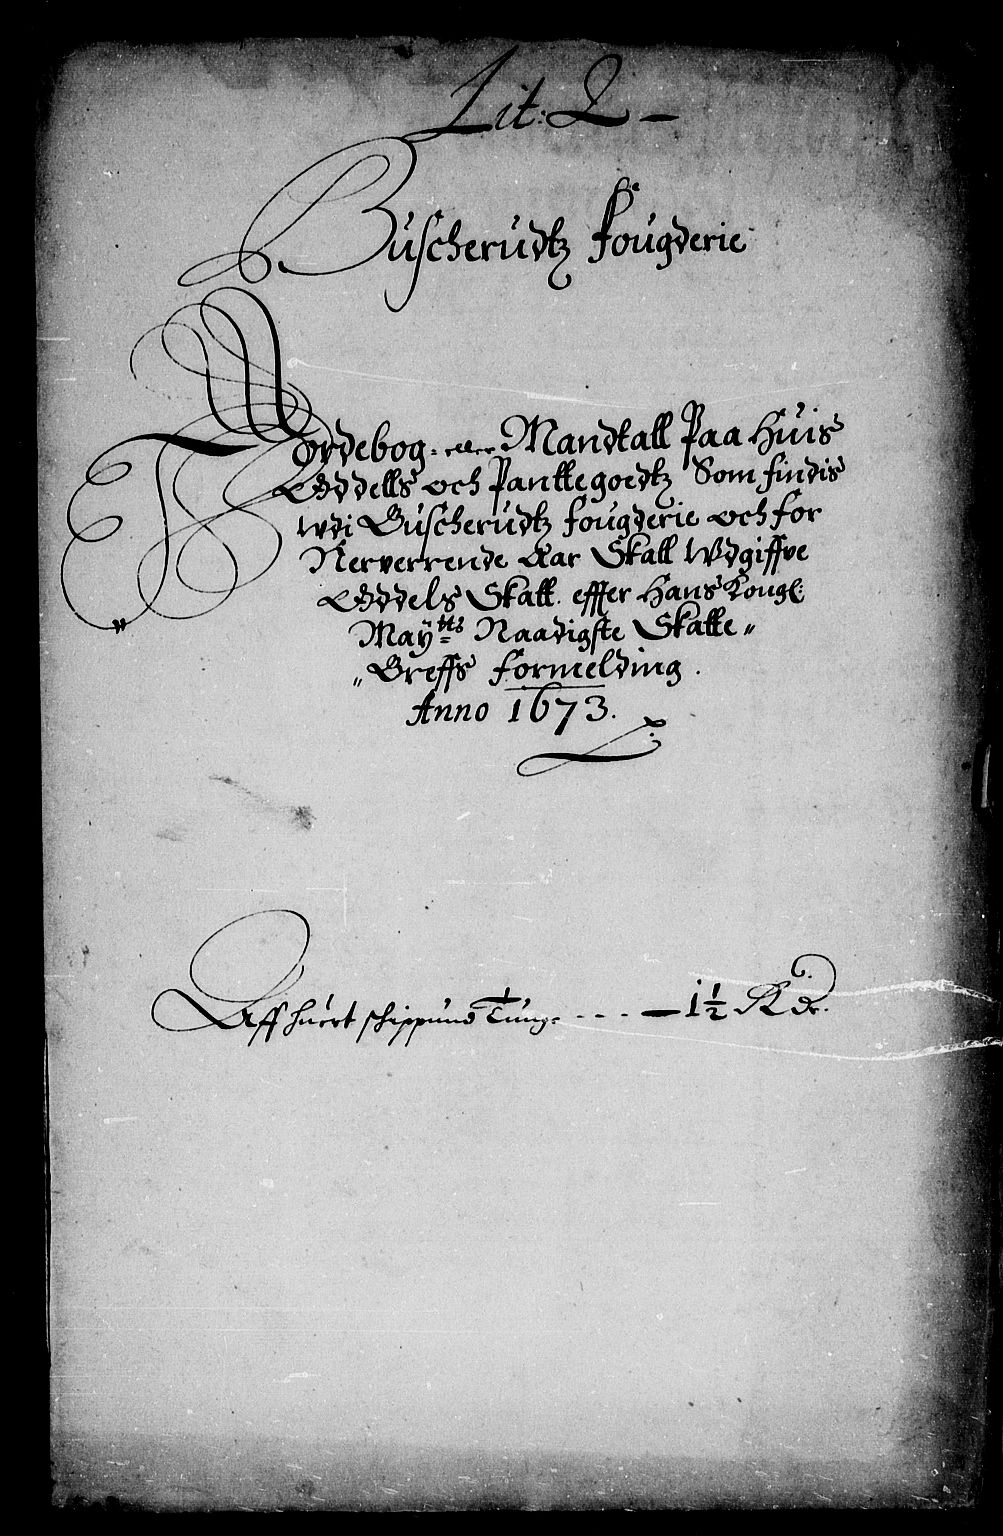 Lit: Q –
Buscherudtz fougderie
Jordebog eller Mandtall Paa Huis
Oddells och Panttegoedtz Som findis
wdi Buscherudtz fougderie och for
Nerverrende Aar Skall Wdgiffve
Oddels Skatt. effter Hans Kongl:
Mayᵗᵗˢ Naadigste Skatte„
„Breffs formelding.
Anno 1673.
Aff huert schippund Tung: - - - — 1½ Rdr.